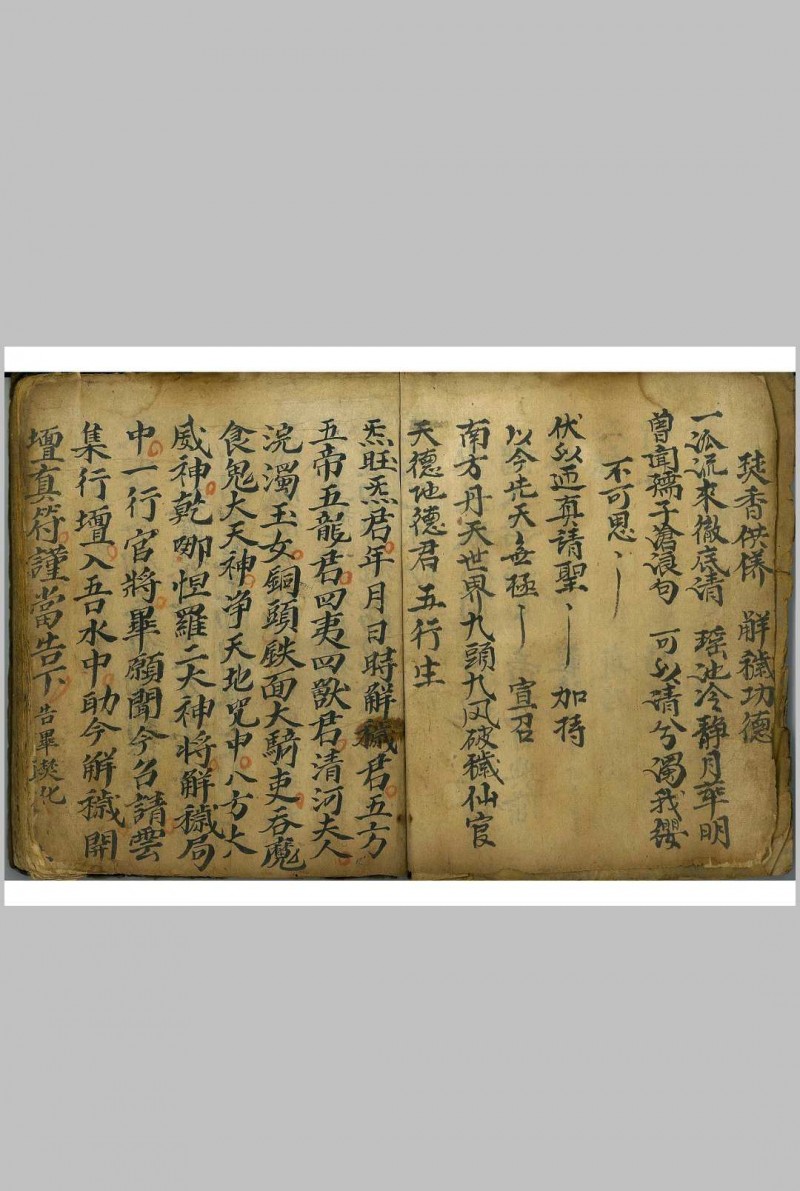 香供養 解穢功德
一派流來徹底清 瑤池冷靜月華明
曽聞孺子滄浪句 可以清兮濁我纓
不可思〻
伏以迎真請聖〻 加持
以今先天無極〻 宣召
南方丹天世界九頭九凤破穢仙官
天德地德君 五行生
炁旺炁君年月日時解穢君五方
五帝五龍君四夷四獸君清河夫人
浣濁玉女銅頭鉄面大騎吏吞魔
食鬼大天神净天地咒中八方大
威神乾哪怛羅二大神將解穢局
中一行官將畢願聞今召請雲
集行壇入吾水中助今解穢開
壇真符謹當告下 告畢 化